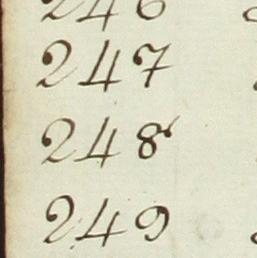 246
247
248
249